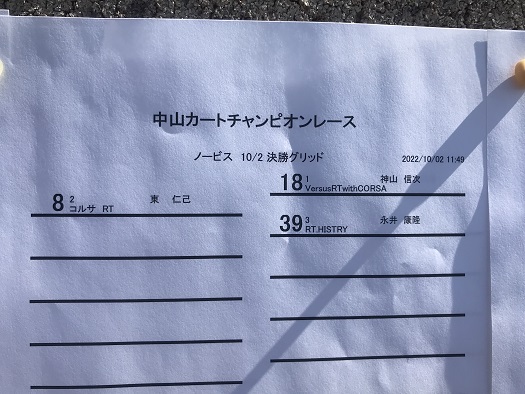 中山カートチャンピオンレース
ノービス 10/2 決勝グリッド 2022/10/02 11:49
18 1 神山 信次
VersusRTwithCORSA
8 2 東 仁己
コルサ RT
39 3 永井 康隆
RT.HISTRY